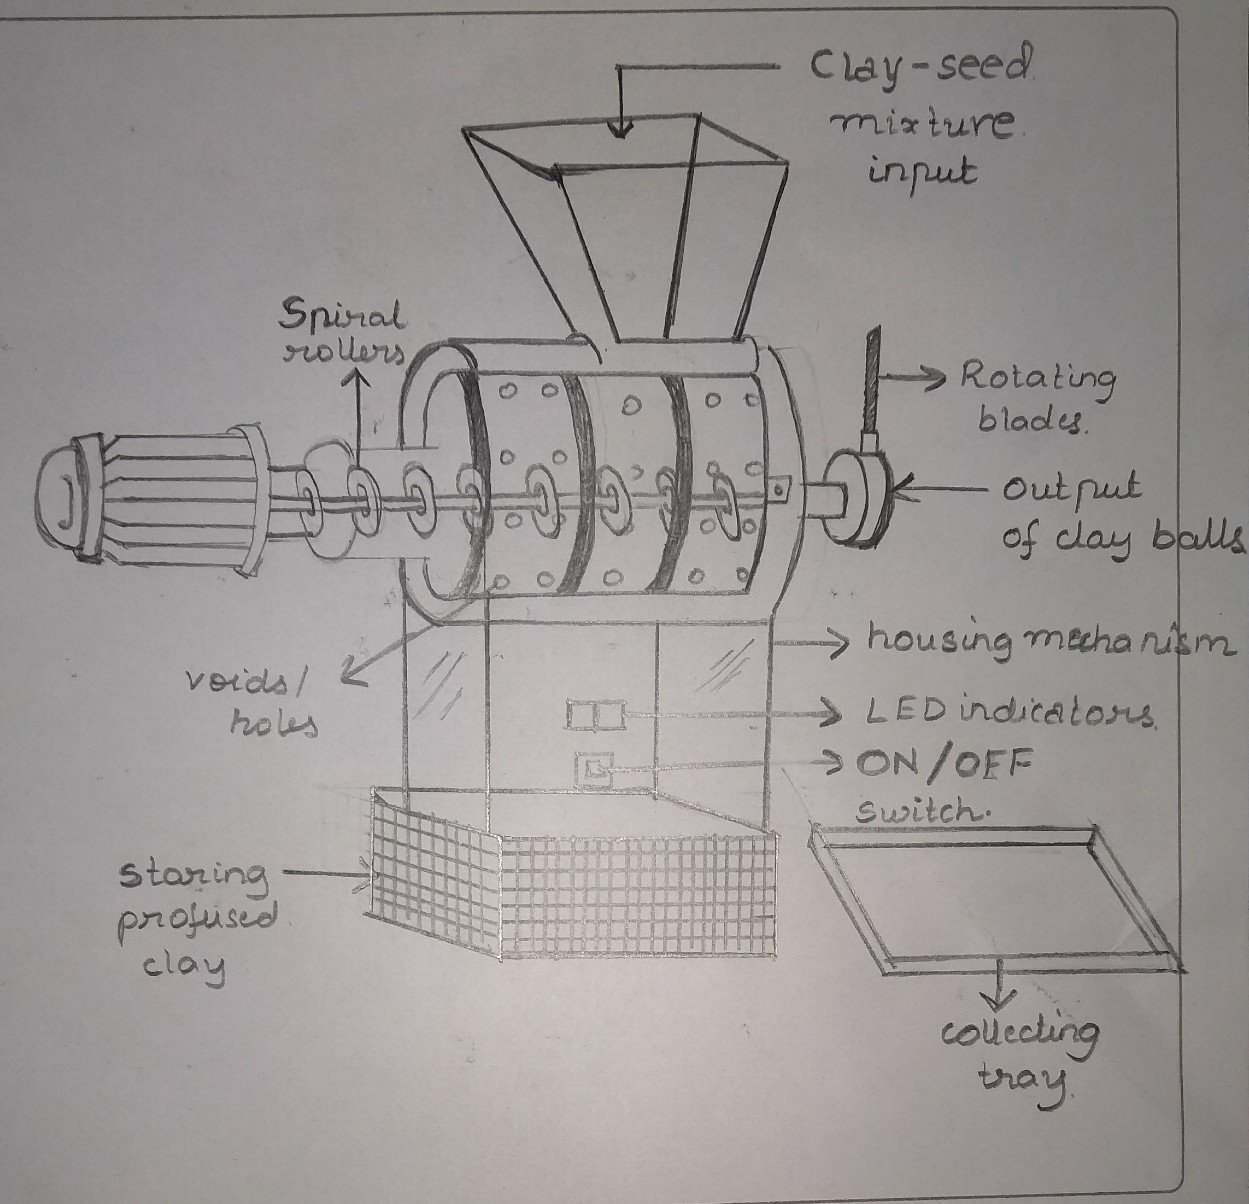 Clay-seed
mixture
input
Spiral
rollers
Rotating
blades.
Output
of clay balls
housing mechanism
voids/
holes
LED indicators
ON/OFF
switch.
staring
profused
clay
collecting
tray